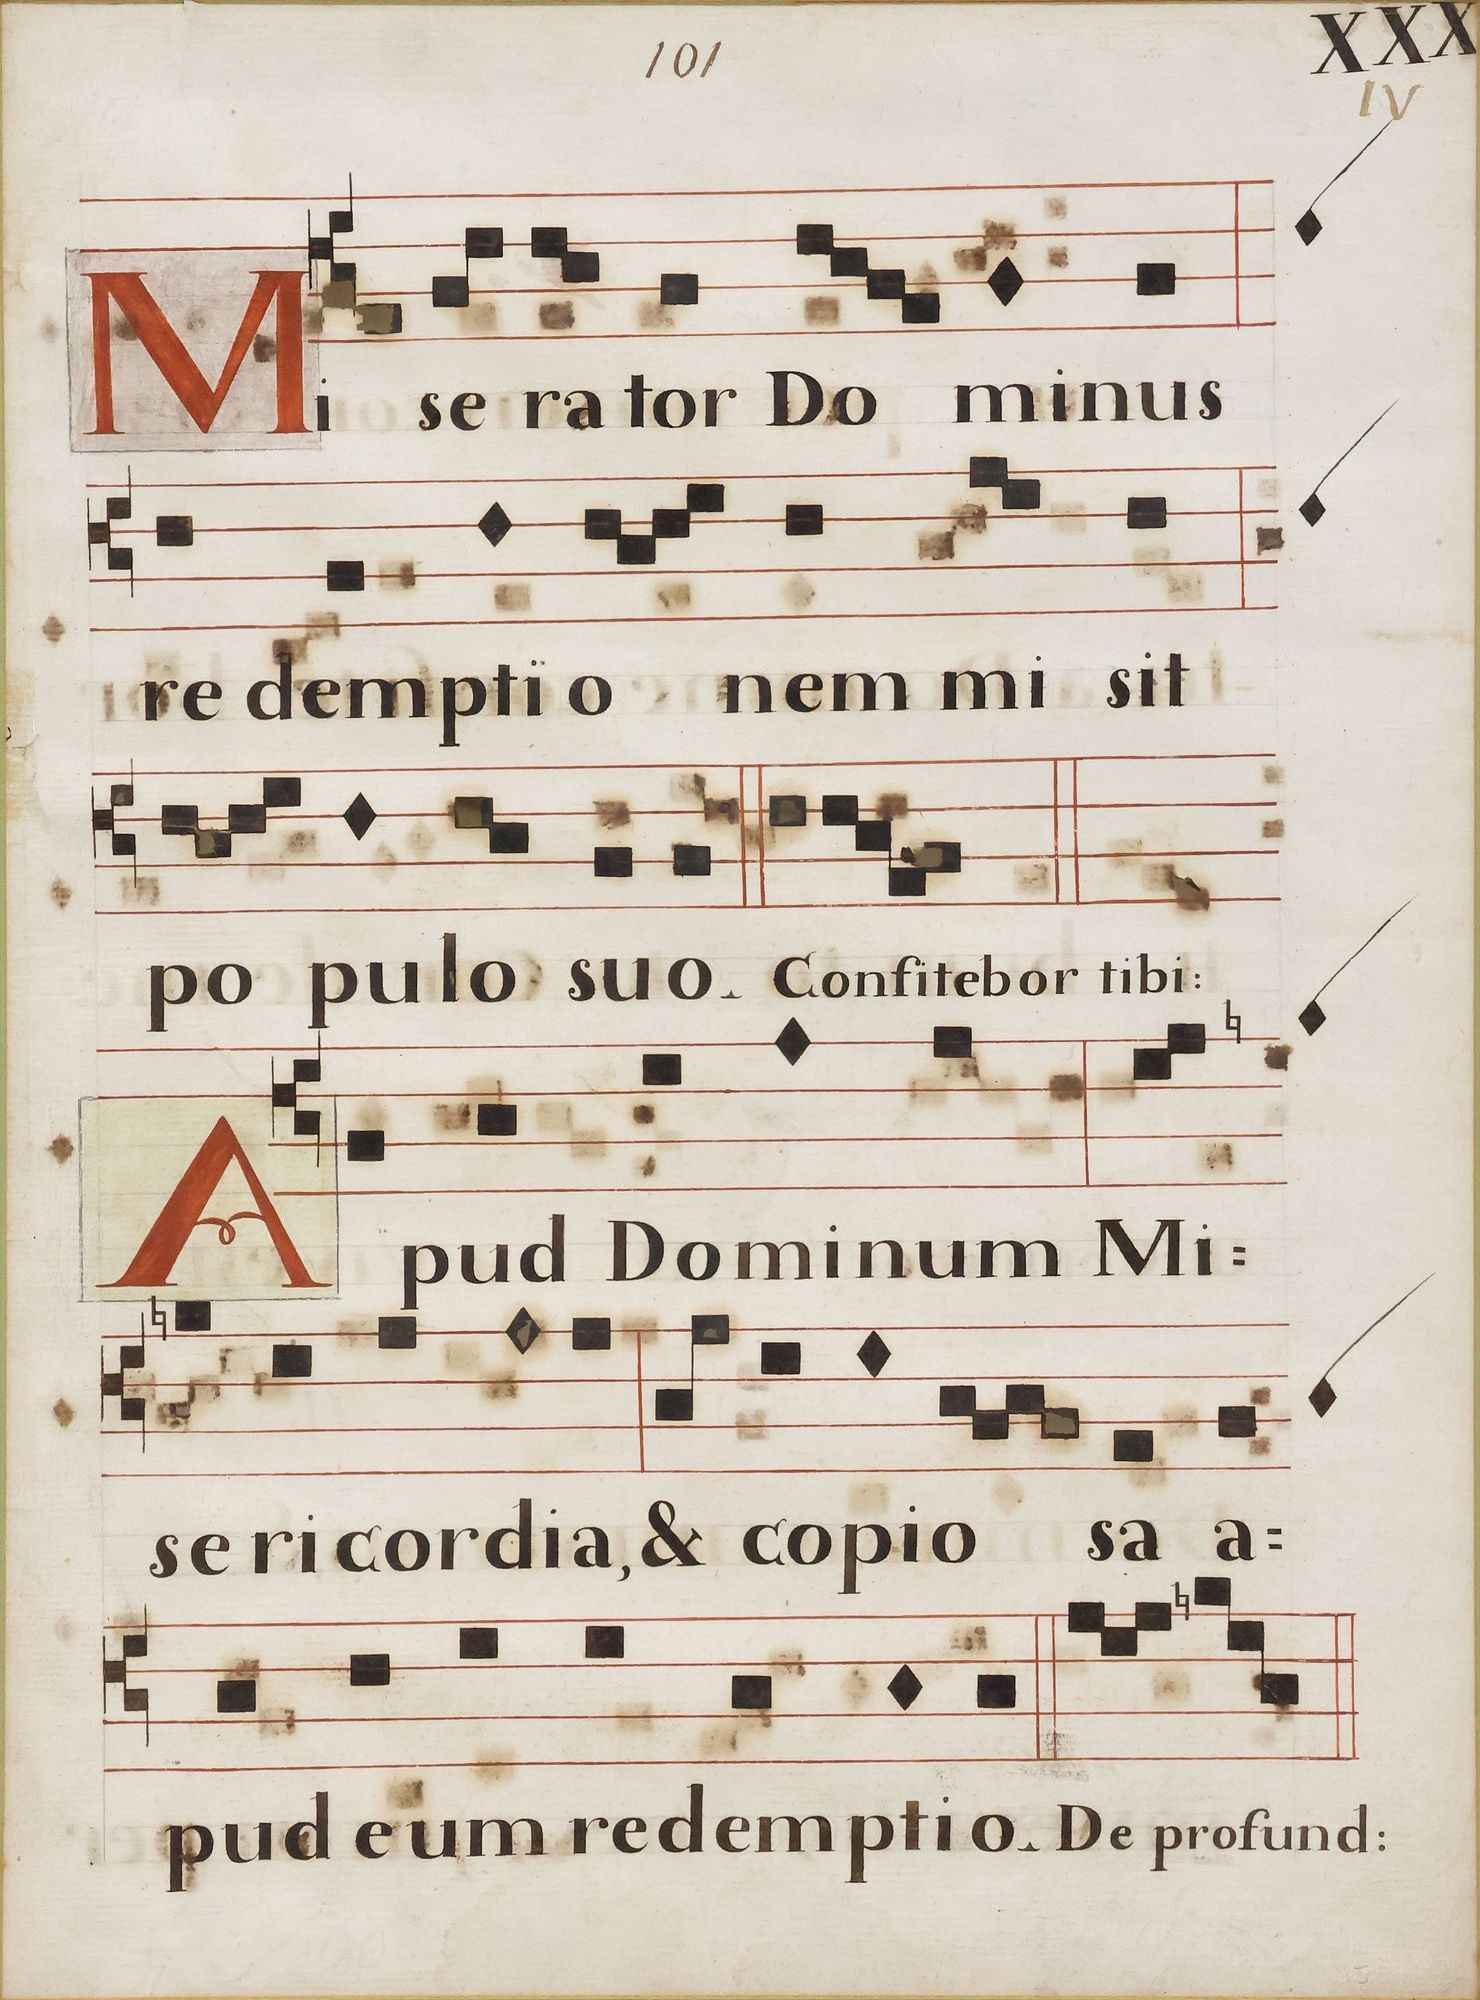 101
XXX
IV
Mi se ra tor Do minus
re dempti o nem mi sit
po pulo suo. Confitebor tibi:
Apud Dominum Mi=
se ri cordia, & copio sa a=
pud eum redemptio. De profund: